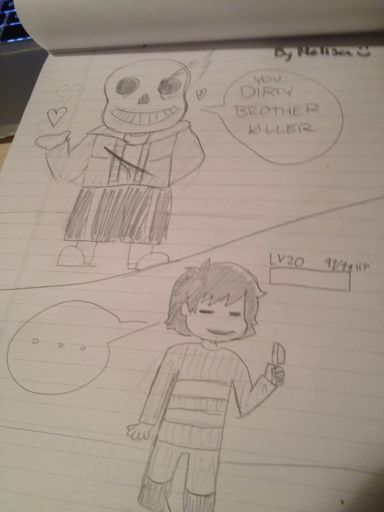 By Melissa
YOU
DIRTY
BROTHER
KILLER
LV20 99/99 HP
...